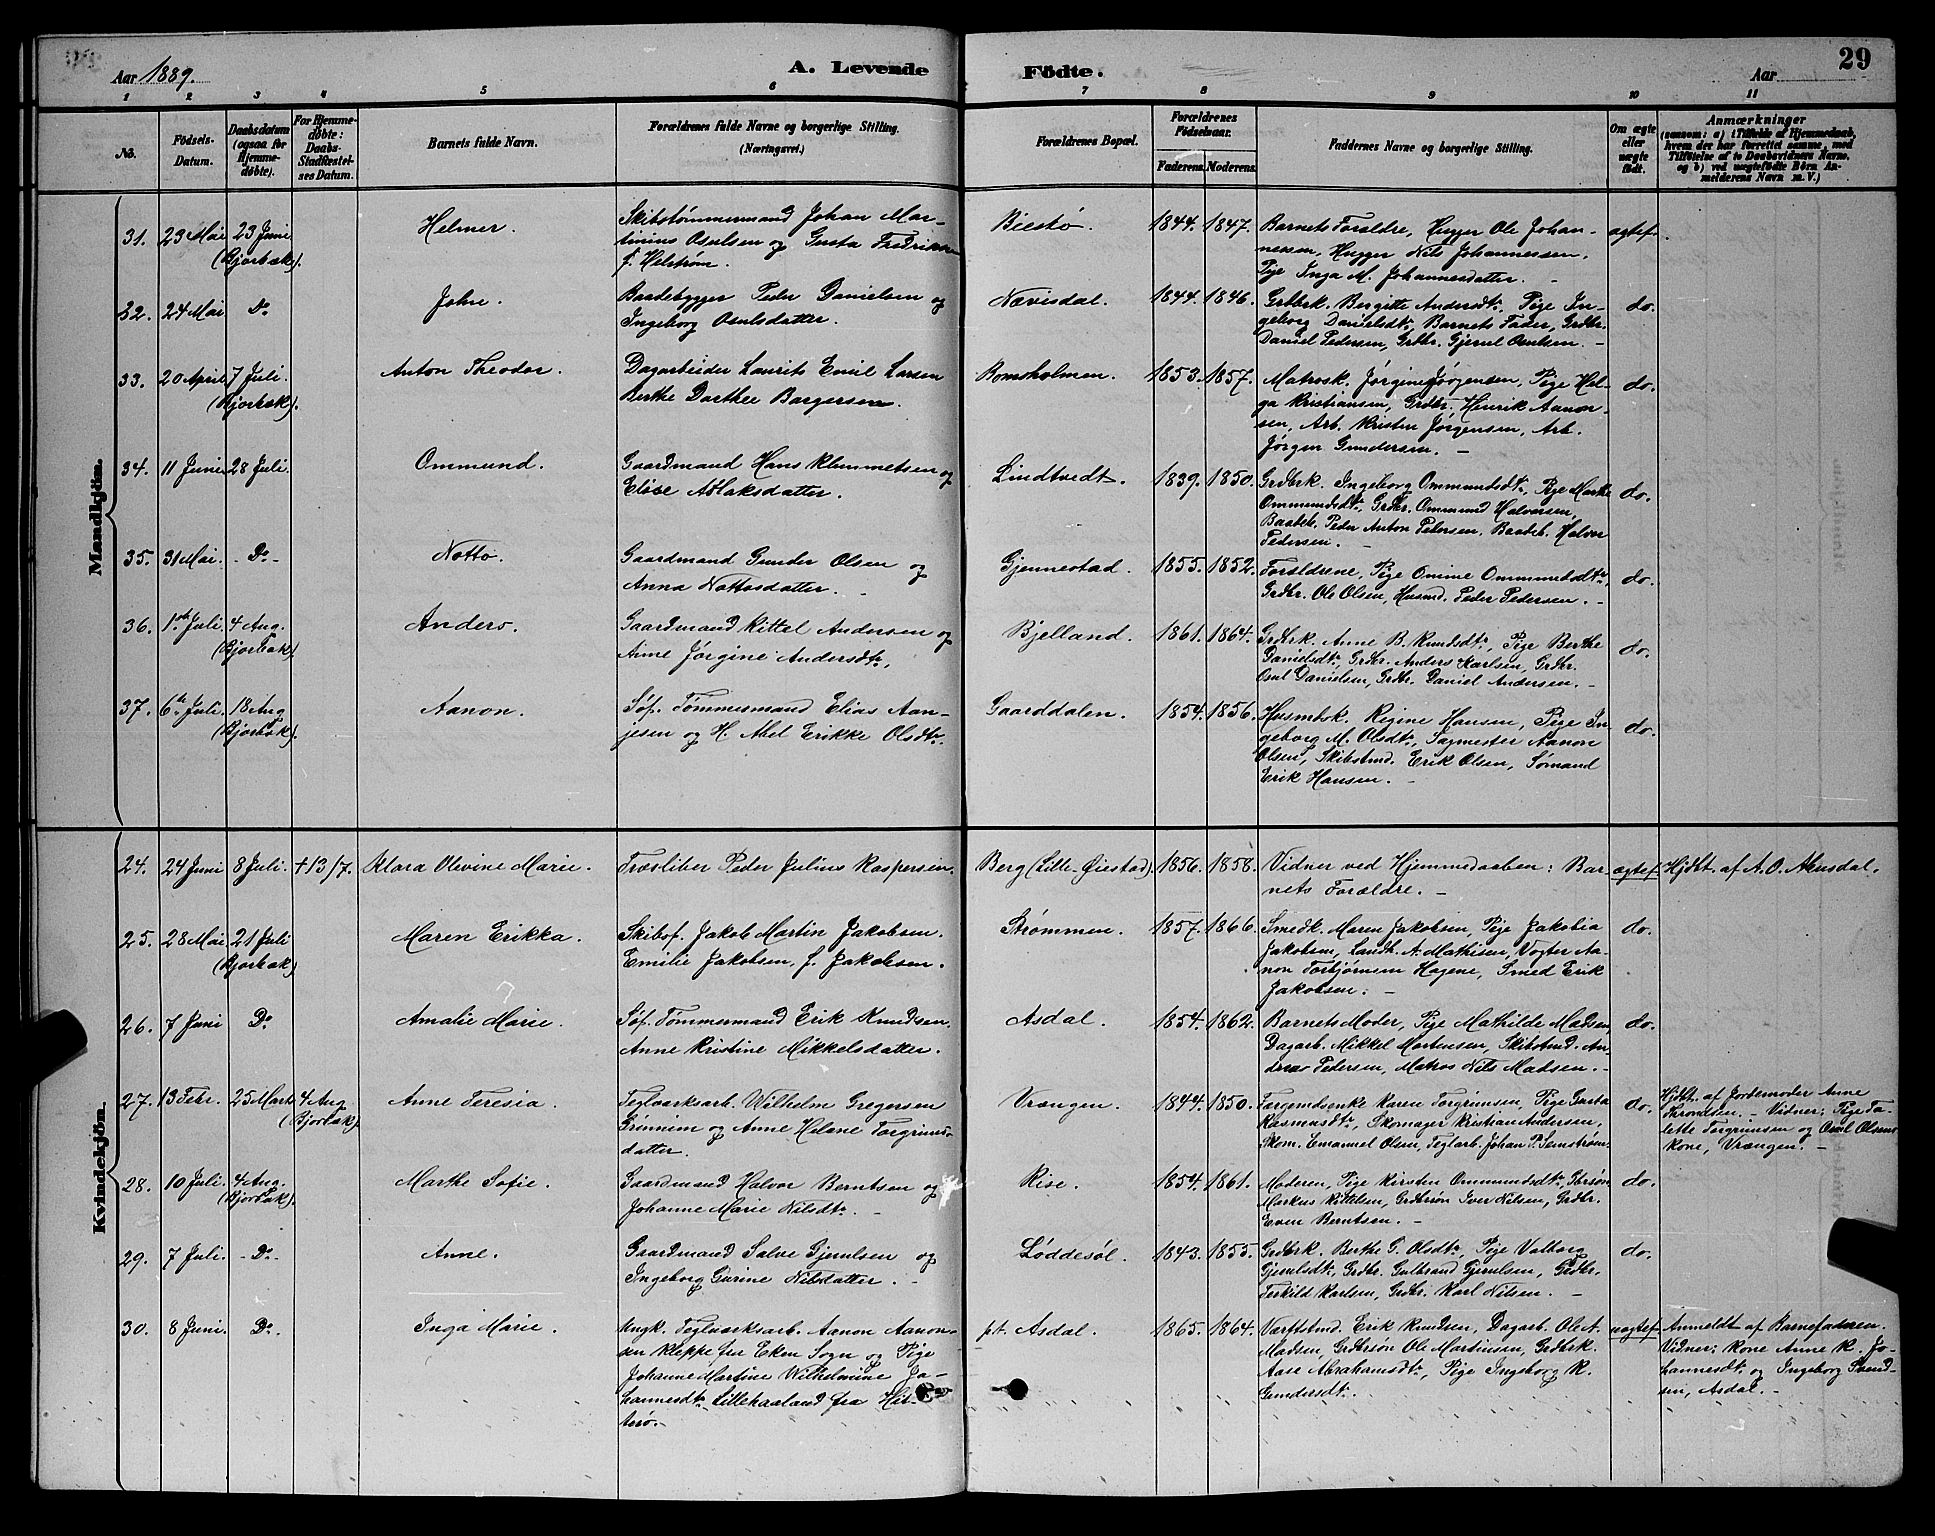 Aar 1889.
A. Levende Födte.
Aar
29
1 2 3 4 5 6 7 8 9 10 11
No.
Födsels-Datum.
Daabsdatum (ogsaa for Hjemme-døbte).
For Hjemme-døbte: Daabs-Stadfæstel-ses Datum.
Barnets fulde Navn.
Forældrenes fulde Navne og borgerlige Stilling.
(Næringsvei.)
Forældrenes Bopæl.
Forældrenes Födselsaar.
Faderens. Moderens.
Faddernes Navne og borgerlige Stilling.
Om ægte eller uægte født.
Anmærkninger
(saasom: a) i Tilfælde af Hjemmedaab, hvem der har forrettet samme, med Tilföielse af to Daabsvidners Navne, og b) ved uægtefödte Börn Anmelderens Navn m. V.)
Mandkjön.
31. 23 Mai 23 Juni (Bjorbæk). Helmer.
Skibstømmermand Johan Mar-
tinius Osulsen og Gusta Fredrikke
f. Helstrøm.
Biestø. 1844. 1847.
Barnets Forældre, Hugger Ole Johan-
nessen, Hugger Nils Johannessen,
Pige Inga M. Johannesdatter. –
ægtef.
32. 24 Mai Do. John.
Baadebygger Peder Danielsen og
Ingeborg Osulsdatter.
Nævisdal. 1844. 1846.
Grdbrk. Bergitte Andersdtr, Pige In-
geborg Danielsdtr, Barnets Fader, Grdbr.
Daniel Pedersen, Grdbr. Gjerul Osulsen. –
do.
33. 20 April 7 Juli. (Bjorbæk). Anton Theodor.
Dagarbeider Laurits Emil Larsen
Berthe Dorthee Børgersen.
Bomsholmen. 1853. 1857.
Matrosk. Jørgine Jørgensen, Pige Hel-
ga Kristiansen, Grdbr. Henrik Aanon-
sen, Arb. Kristen Jørgensen, Arb.
Jørgen Gundersen. –
do.
34. 11 Juni 28 Juli. Ommund.
Gaardmand Hans Klemmetsen og
Elise Aslaksdatter.
Lindtvedt. 1839. 1850.
Grdbrk. Ingeborg Ommundsdtr, Pige Marthe
Ommundsdtr, Grdbr. Ommund Halvorsen,
Baadeb. Peder Anton Pedersen, Baadeb. Halvor
Pedersen. –
do.
35. 31 Mai. – Do – Notto.
Gaardmand Gunder Olsen og
Anna Nottosdatter. –
Gjennestad. 1855. 1852.
Forældrene, Pige Omine Ommundsdtr,
Grdbr. Ole Olsen, Husmd. Peder Pedersen. –
do.
36. 1ste Juli 4 Aug. (Bjorbæk) Anders.
Gaardmand Kittel Andersen og
Anne Jørgine Andersdtr,
Bjelland. 1861. 1864.
Grdbrk. Anne B. Knudsdtr, Pige Berthe
Danielsdtr, Grdbr. Anders Karlsen, Grdbr.
Osul Danielsen, Grdbr. Daniel Andersen. –
do.
37. 6te Juli. 18 Aug (Bjorbæk). Aanon.
Søf. Tømmermand Elias Aan-
jesen og H. Abel Erikke Olsdtr.
Gaarddalen. 1854. 1856.
Husmbsk. Regine Hansen, Pige In-
geborg M. Olsdtr, Sagmester Aanon
Olsen, Skibstmd. Erik Olsen, Sømand
Erik Hansen. –
do.
Kvindekjön.
24. 24 Juni 8 Juli. +13/7. Klara Olevine Marie.
Træsliber Peder Julius Kaspersen.
Berg (Lille-Øiestad). 1856. 1858.
Vidner ved Hjemmedaaben: Bar-
nets Forældre. –
ægtef.
Hjdbt. af A. O. Akersdal.
25. 28 Mai 21 Juli (Bjorbæk) Maren Erikka.
Skibsf. Jakob Martin Jakobsen.
Emilie Jakobsen, f. Jakobsen.
Strømmen. 1857. 1866.
Smedk. Maren Jakobsen, Pige Jakobia
Jakobsen, Landh. A. Mathisen, Vogter Aa-
non Torbjørnsen Hagene, Smed Erik
Jakobsen. –
do.
26. 7 Juni Do. Amalie Marie.
Søf. Tømmermand Erik Knudsen.
Anne Kristine Mikkelsdatter.
Asdal. 1854. 1862.
Barnets Moder, Pige Mathilde Madsen,
Dagarb. Mikkel Mortensen, Skibstmd. An-
dreas Pedersen, Matros Nils Madsen. –
do.
27. 13 Febr. 25 Marts 4 Aug (Bjorbæk). Anne Teresia.
Teglværksarb. Wilhelm Gregersen
Grinnem og Anne Helene Torgrims-
datter.
Vrængen. 1844. 1850.
Færgemdsenke Karen Torgrimsen, Pige Gusta
Rasmusdtr, Skomager Kristian Andersen,
Skom. Emanuel Olsen, Teglarb. Johan P. Semstrøm.
do.
Hjdbt. af Jordemoder Anne
Throndsen. – Vidner: Pige Ta-
lette Torgrimsen og Osul Olsens
kone, Vrængen. –
28. 10 Juli. 4 Aug. (Bjorbæk). Marthe Sofie.
Gaardmand Halvor Berntsen og
Johanne Marie Nilsdtr. –
Rise. 1854. 1861.
Moderen, Pige Kirsten Ommundsdtr, Gbrsøn
Markus Kittelsen, Grdbrsøn Iver Nilsen, Grdbr.
Even Berntsen. –
do.
29. 7 Juli. – Do – Anne.
Gaardmand Salve Gjerulsen og
Ingeborg Gurine Nilsdatter. –
Løddesøl. 1843. 1855.
Grdbrk. Berthe G. Olsdtr, Pige Valborg
Gjerulsdtr, Grdbr. Gulbrand Gjerulsen, Grdbr.
Terkild Karlsen, Grdbr. Karl Nilsen. –
do.
30. 8 Juni. Do. Inga Marie.
Ungk. Teglværksarb. Aanon Aanon-
sen Kleppe fra Eken Sogn og Pige
Johanne Martine Wilhelmine Jo-
hannesdtr Lillehaaland fra Hit-
terø. –
pt. Asdal. 1865. 1864.
Værftstmd. Erik Knudsen, Dagarb. Ole A.
Madsen, Grdbrsøn Ole Martinsen, Grdbrk.
Aase Abrahamsdtr, Pige Ingeborg K.
Gundersdtr.
uægtef.
Anmeldt af Barnefaderen.
Vidner: Kone Anne K. Jo-
hannesdtr og Ingeborg Svend-
sen, Asdal. –